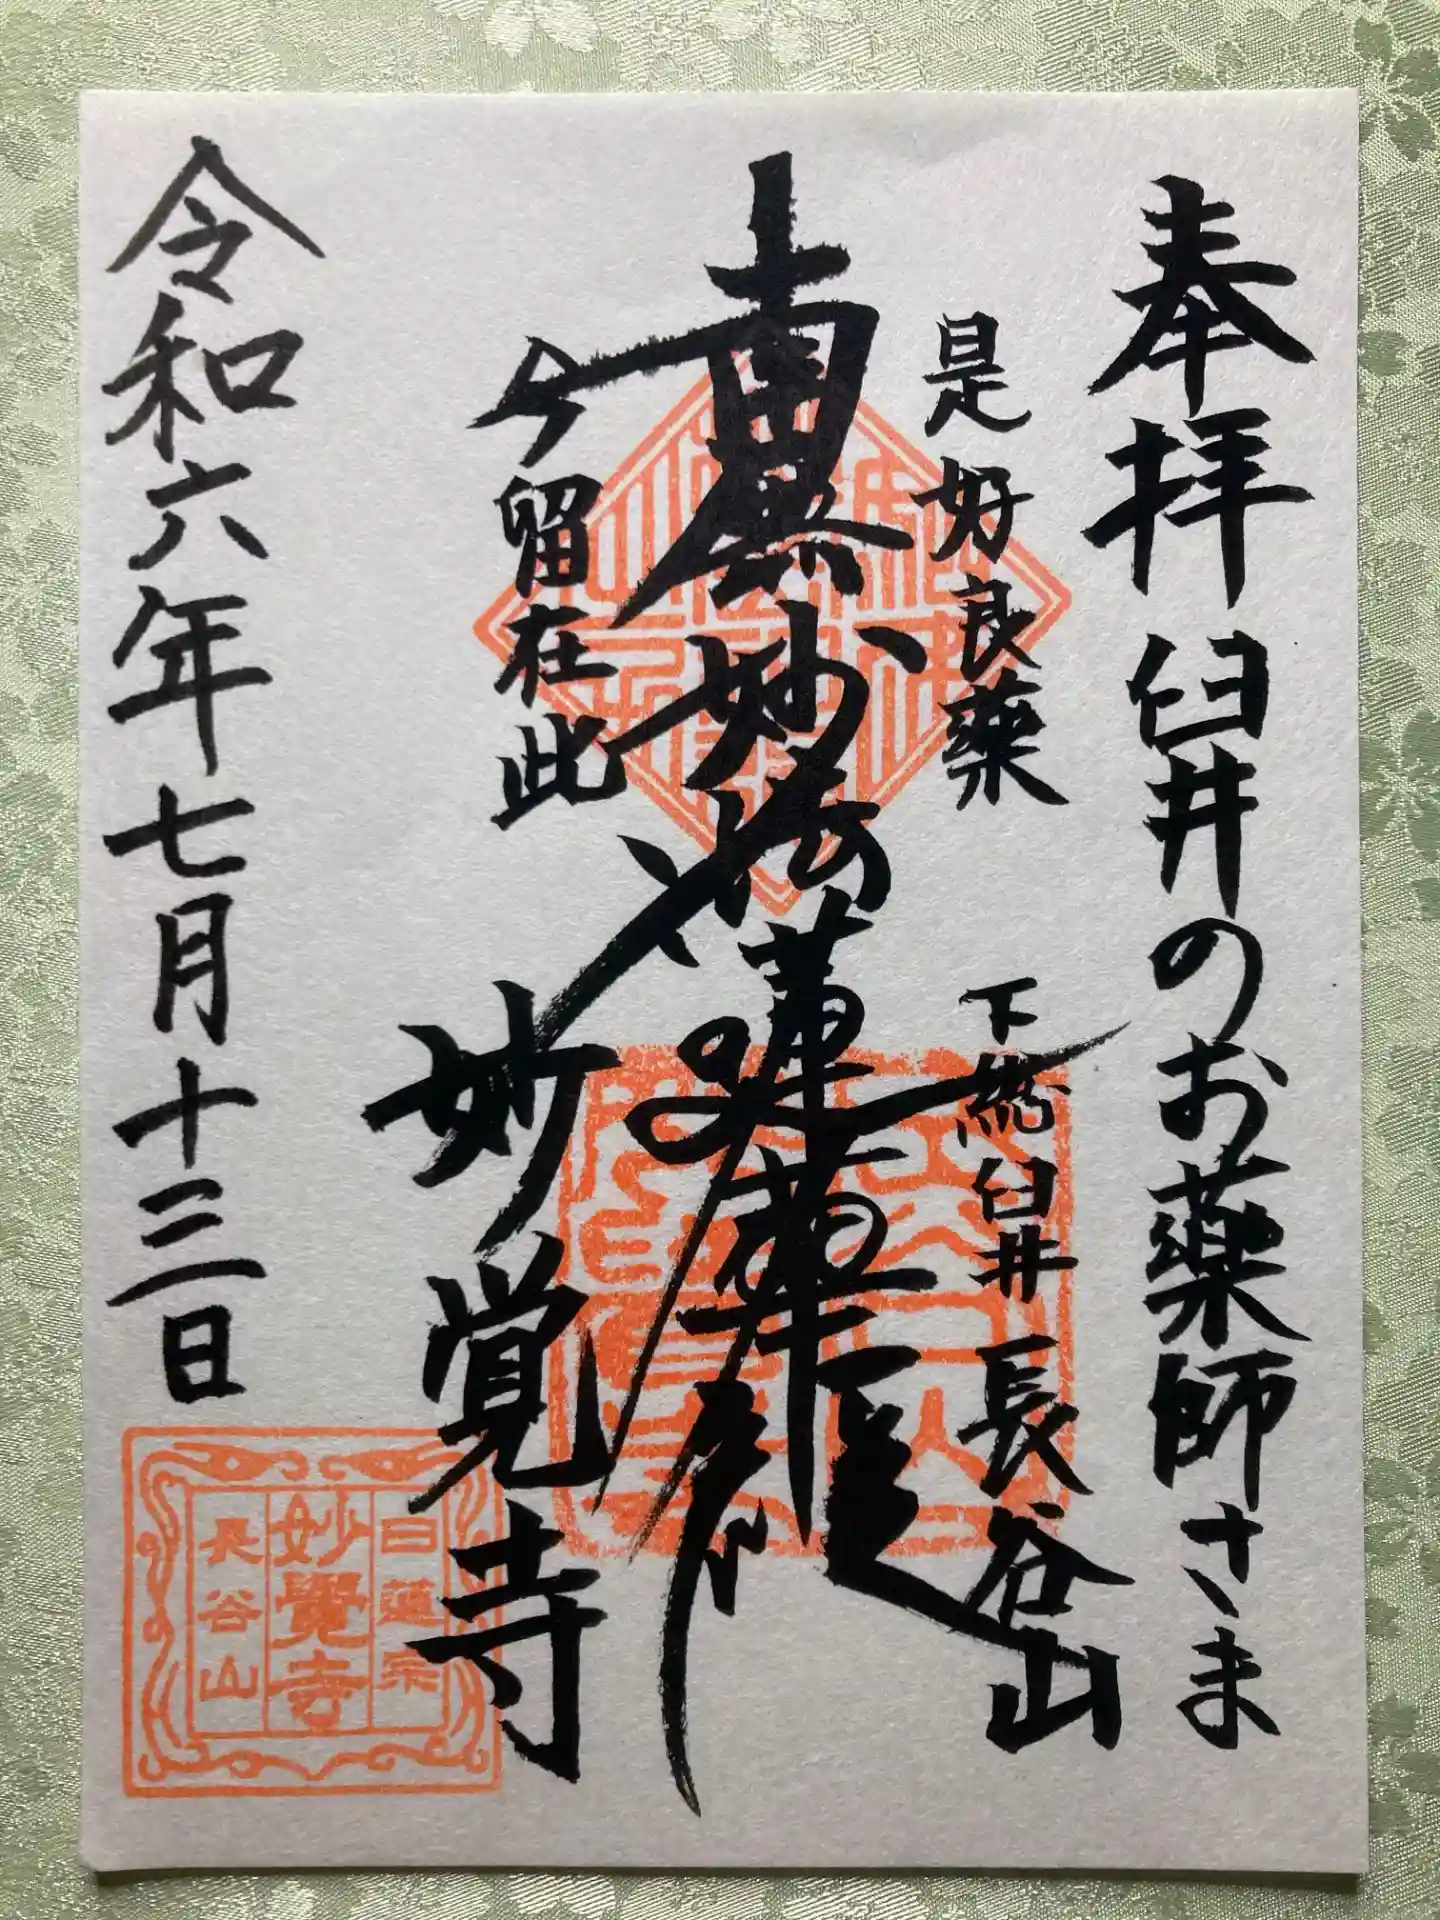 奉拝 臼井のお薬師さま
是好良薬
下総臼井 長谷山
南無妙法蓮華経
今留在此
妙覚寺
令和六年七月十三日
日蓮宗
妙覺寺
長谷山